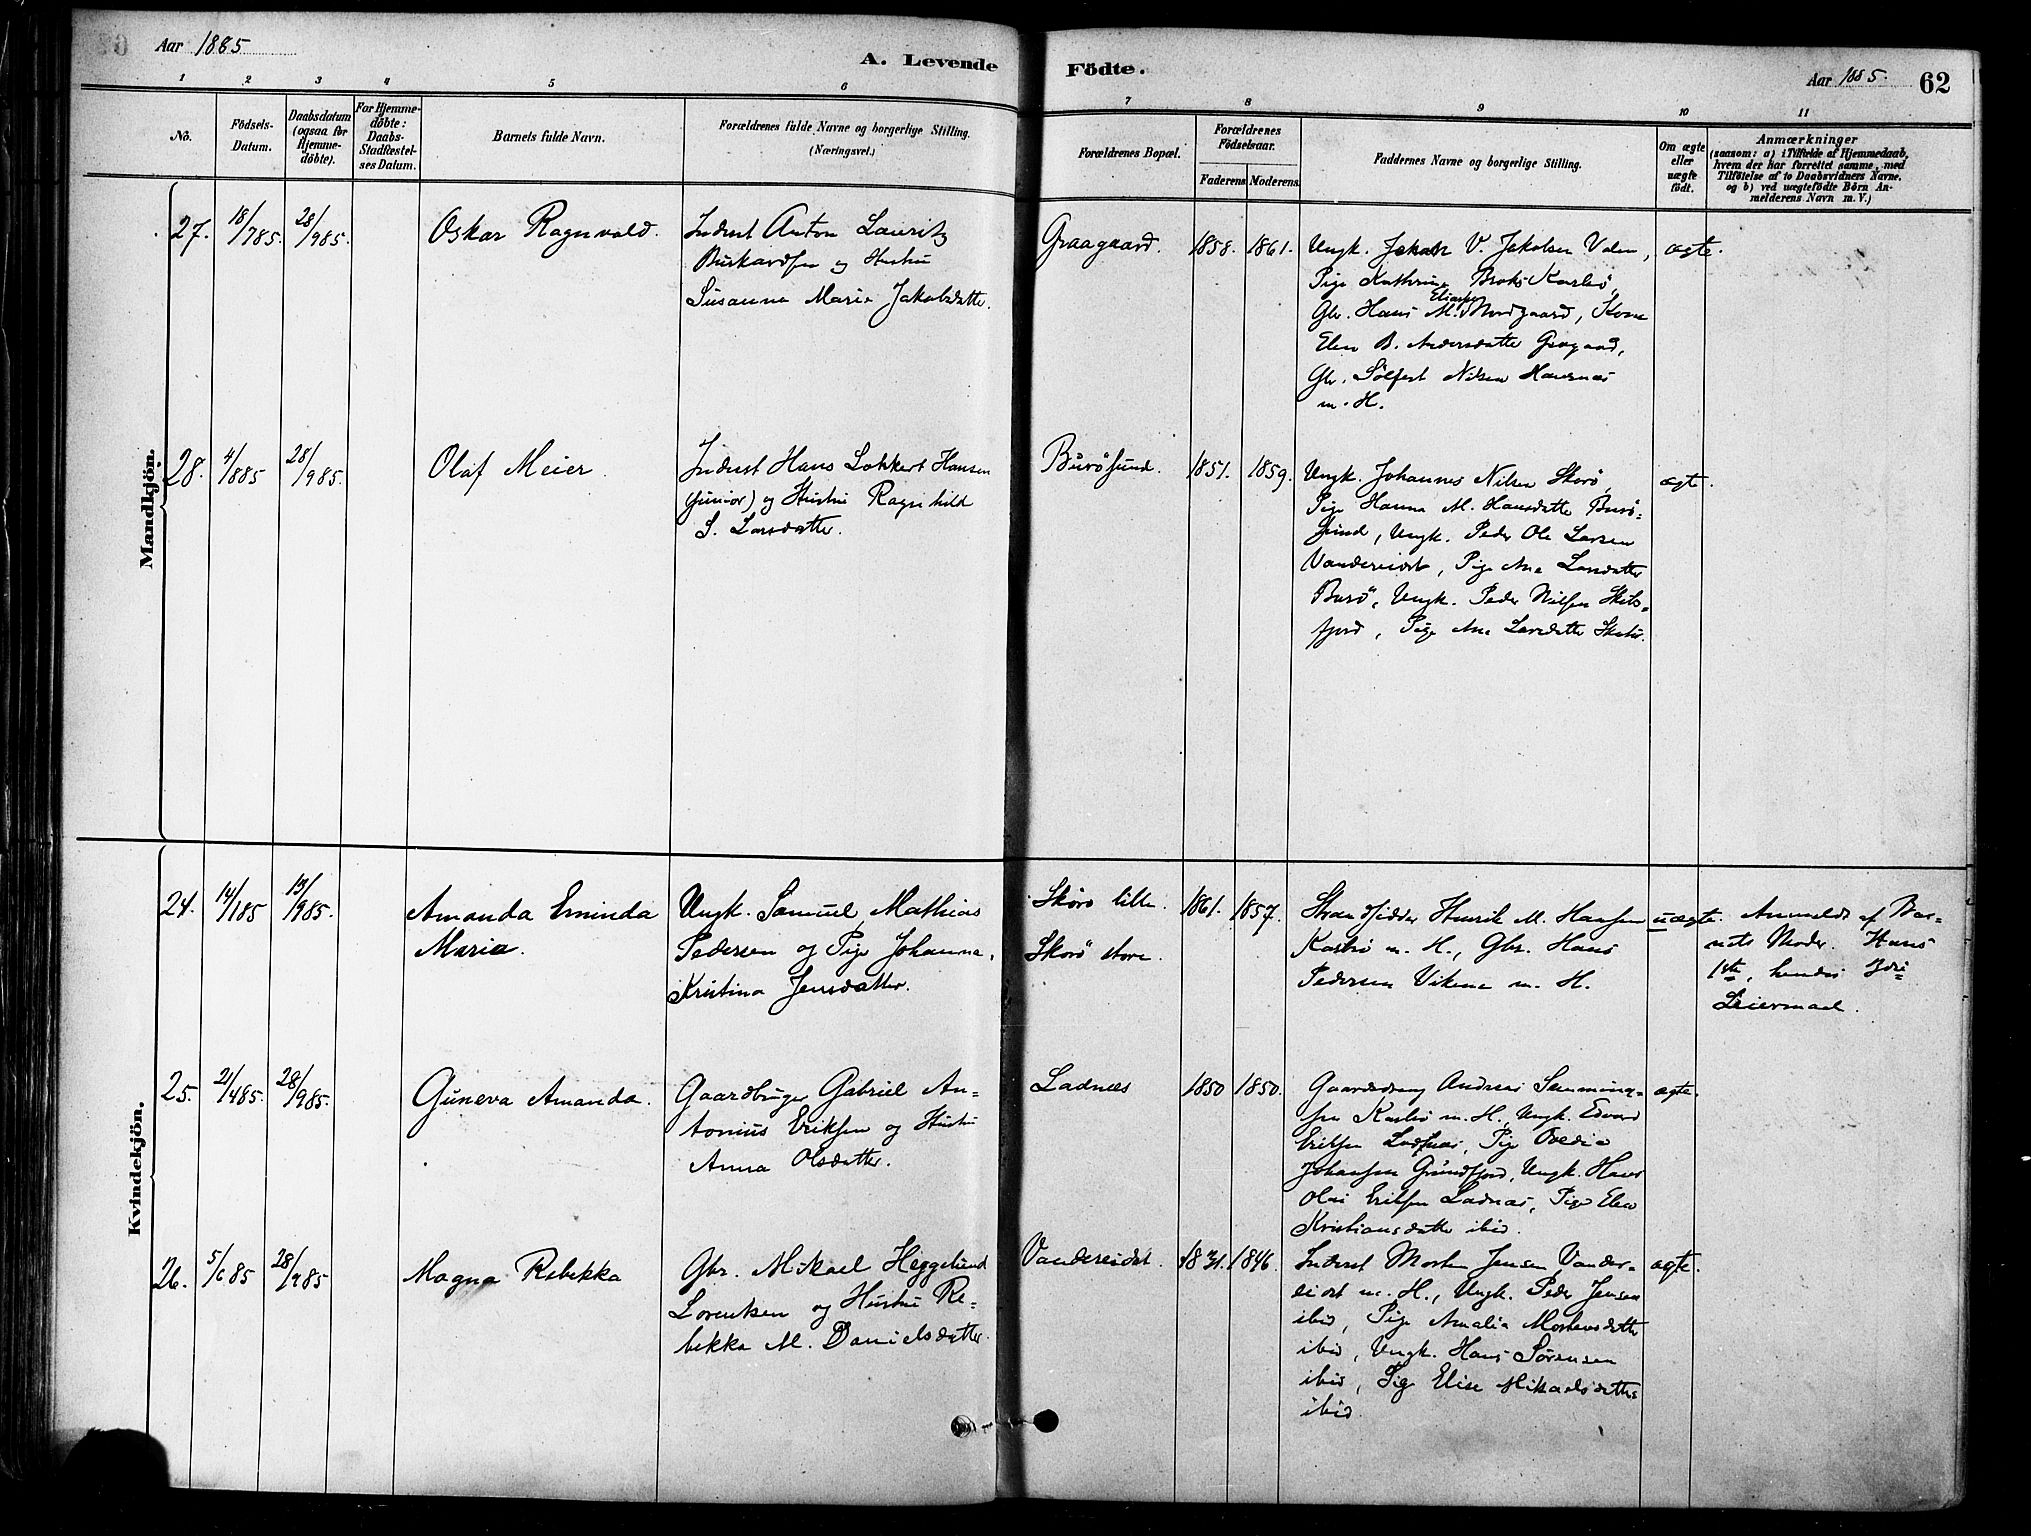 Aar 1885
A. Levende
1 2 3 4 5 6
No.
Födsels-
Datum.
Daabsdatum
(ogsaa for
Hjemme-
döbte).
For Hjemme-
döbte:
Daabs-
Stadfæstel-
ses Datum.
Barnets fulde Navn.
Forældrenes fulde Navne og borgerlige Stilling.
(Næringsvei.)
Mandkjön.
27. 18/7 85. 28/9 85. Oskar Ragnvald.
Inderst Anton Lauritz
Burkardsen og Hustru
Susanna Marie Jakobsdatter.
28. 4/8 85 28/9 85. Olaf Meier.
Inderst Hans Lokkert Hansen
(junior) og Hustru Ragnhild
S. Larsdatter.
Kvindekjön.
24. 14/1 85 13/9 85. Amanda Erninda
Maria.
Ungk. Samuel Mathias
Pedersen og Pige Johanna
Kristina Jensdatter.
25. 21/4 85. 28/9 85. Guneva Amanda.
Gaardbruger Gabriel An-
tonius Eriksen og Hustru
Anna Olsdatter.
26. 5/6 85 28/9 85 Magna Rebekka
Gbr. Mikael Heggelund
Lorentsen og Hustru Re-
bekka M. Danielsdatter.
Födte.
Aar 1885. 62
7 8 9 10 11
Forældrenes Bopæl.
Forældrenes
Födselsaar.
Faderens Moderens.
Faddernes Navne og borgerlige Stilling.
Om ægte
eller
uægte
födt.
Anmærkninger
(saasom: a) i Tilfælde af Hjemmedaab,
hvem der har forrettet samme, med
Tilföielse af to Daabsvidners Navne,
og b) ved uægtefödte Börn An-
melderens Navn m. V.)
Graagaard. 1858. 1861. Ungk. Jakob V. Jakobsen Valen, ægte.
Pige Kathrine Broks Karlsö,
Eliassen
Gbr. Hans M. Nordgaard, Kone
Elen B. Andersdatter Graagaard,
Gbr. Sölfest Nilsen Hansnæs
m. H.
Burösund. 1851. 1859. Ungk. Johannes Nilsen Skorö, ægte.
Pige Hanna M. Hansdatter Burö-
sund, Ungk. Peder Ole Larsen
Vandereidet, Pige Ane Larsdatter
Burö, Ungk. Peder Nilsen Skits-
fjord, Pige Ane Larsdatter
Skorö lille. 1861. 1857. Strandsidder Henrik M. Hansen uægte. Anmeldt af Bar-
Skorö store. Karlsö m. H., Gbr. Hans
Pedersen Vikene m. H.
nets Moder. Hans
1ste, hendes 3die
Leiermaal.
Ladnæs 1850 1850. Gaardbrug Andreas Samming-
sen Karlsö m. H., Ungk. Edvard ægte.
Eriksen Ladnæs, Pige Ovedia
Johansen Grundfjord, Ungk. Hans
Olai Eriksen Ladnæs, Pige Elen
Kristiansdatter ibid.
Vandereidet. 1831. 1846. Inderst Morten Jensen Vander- ægte.
eidet m. H., Ungk. Peder Jensen
ibid, Pige Amalia Mortensdatter
ibid, Ungk. Hans Sörensen
ibid, Pige Elise Mikaelsdatter
ibid.